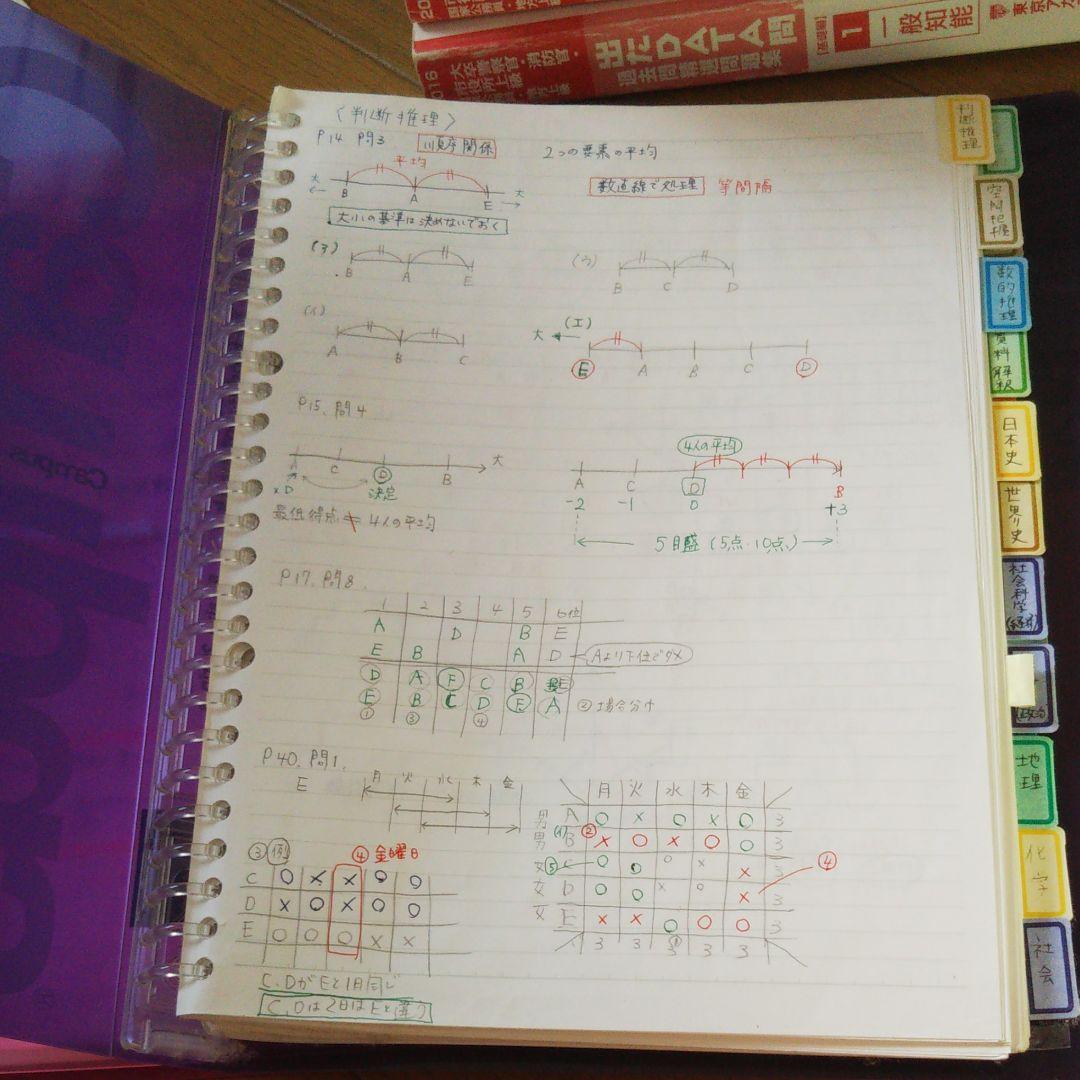 2016
大卒警察官・消防官・
市役所上級
出たDATA問
過去問精選問題集
【基礎編】
1
一般知能
東京アカ
Campus
〈判断推理〉
P14 問3
順序関係
2つの要素の平均
平均
大
B
A
E
大
数直線で処理
等間隔
大小の基準は決めないでおく
(ア)
B
A
E
(ウ)
B
C
D
(イ)
A
B
C
(エ)
大
E
A
B
C
D
P15. 問4
C
D
B
大
×D
決定
最低得点≠4人の平均
4人の平均
A
C
D
B
-2
-1
0
+3
5目盛(5点-10点)
P17. 問8.
1 2 3 4 5 6位
A D B E
E B A D Aより下位でダメ
D A F C B E
E B C D F A ②場合分け
① ③ ④
P40. 問1.
E
月 火 水 木 金
③例
④金曜日
C ○ × × ○ ○
D × ○ × ○ ○
E ○ ○ ○ × ×
C、DがEと1日同じ
C、Dは2日はEと違う
月 火 水 木 金
男 A ○ × ○ × ○ 3
男 B ② × ○ × ○ ○ 3
女 C ⑤ ○ ○ ○ × × 3
女 D ○ ○ × ○ × 3
女 E × × ○ ○ ○ 3
④
3 3 3 3 3
判断推理
空間把握
数的推理
資料解釈
日本史
世界史
社会科学
(経済)
地理
化学
社会